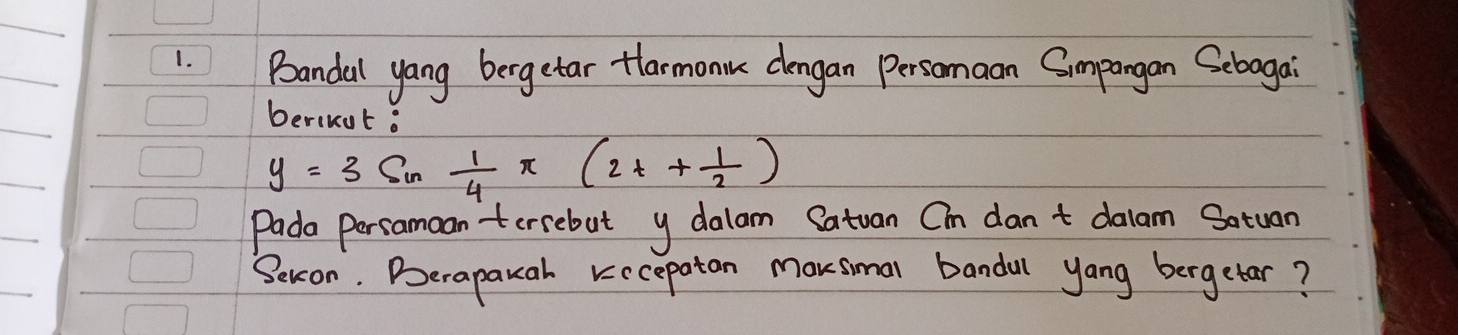 1. Bandul yang bergetar Harmonik dengan Persamaan Simpangan Sebagai
berikut :
y = 3 Sin 1/4 π (2t + 1/2)
Pada Persamaan tersebut y dalam Satuan Cm dan t dalam Satuan
Sekon. Berapakah kecepatan maksimal bandul yang bergetar ?